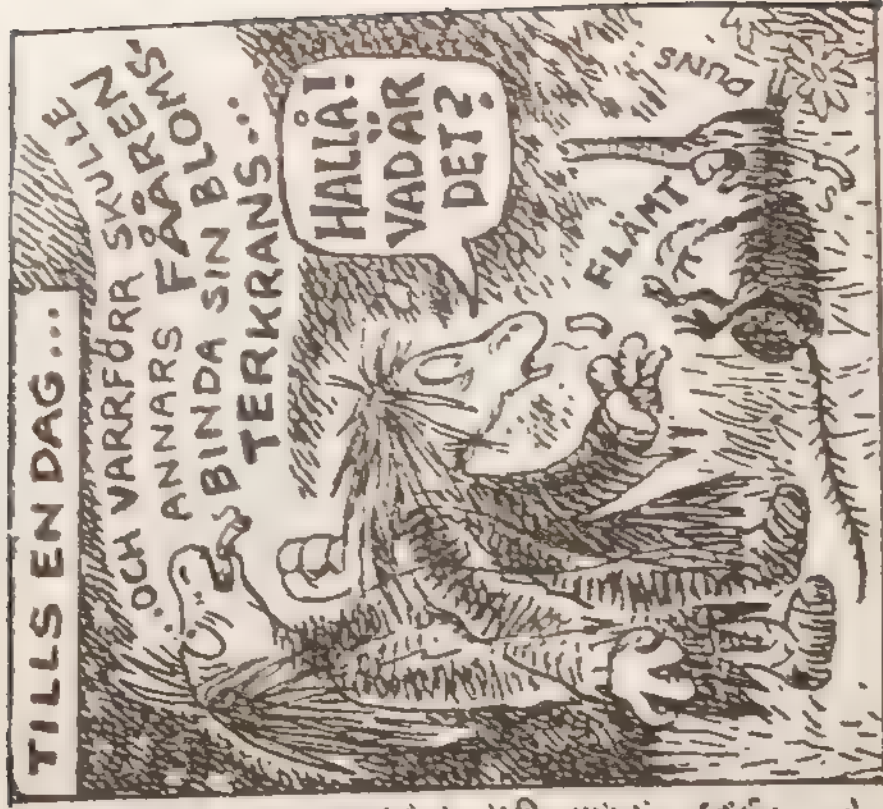 TILLS EN DAG...
..OCH VARRFÖRR SKULLE
ANNARS FAÅREN
BINDA SIN BLOMS'
TERKRANS...
HALLÅ!
VAD ÄR
DET?
FLÄMT
DUNS